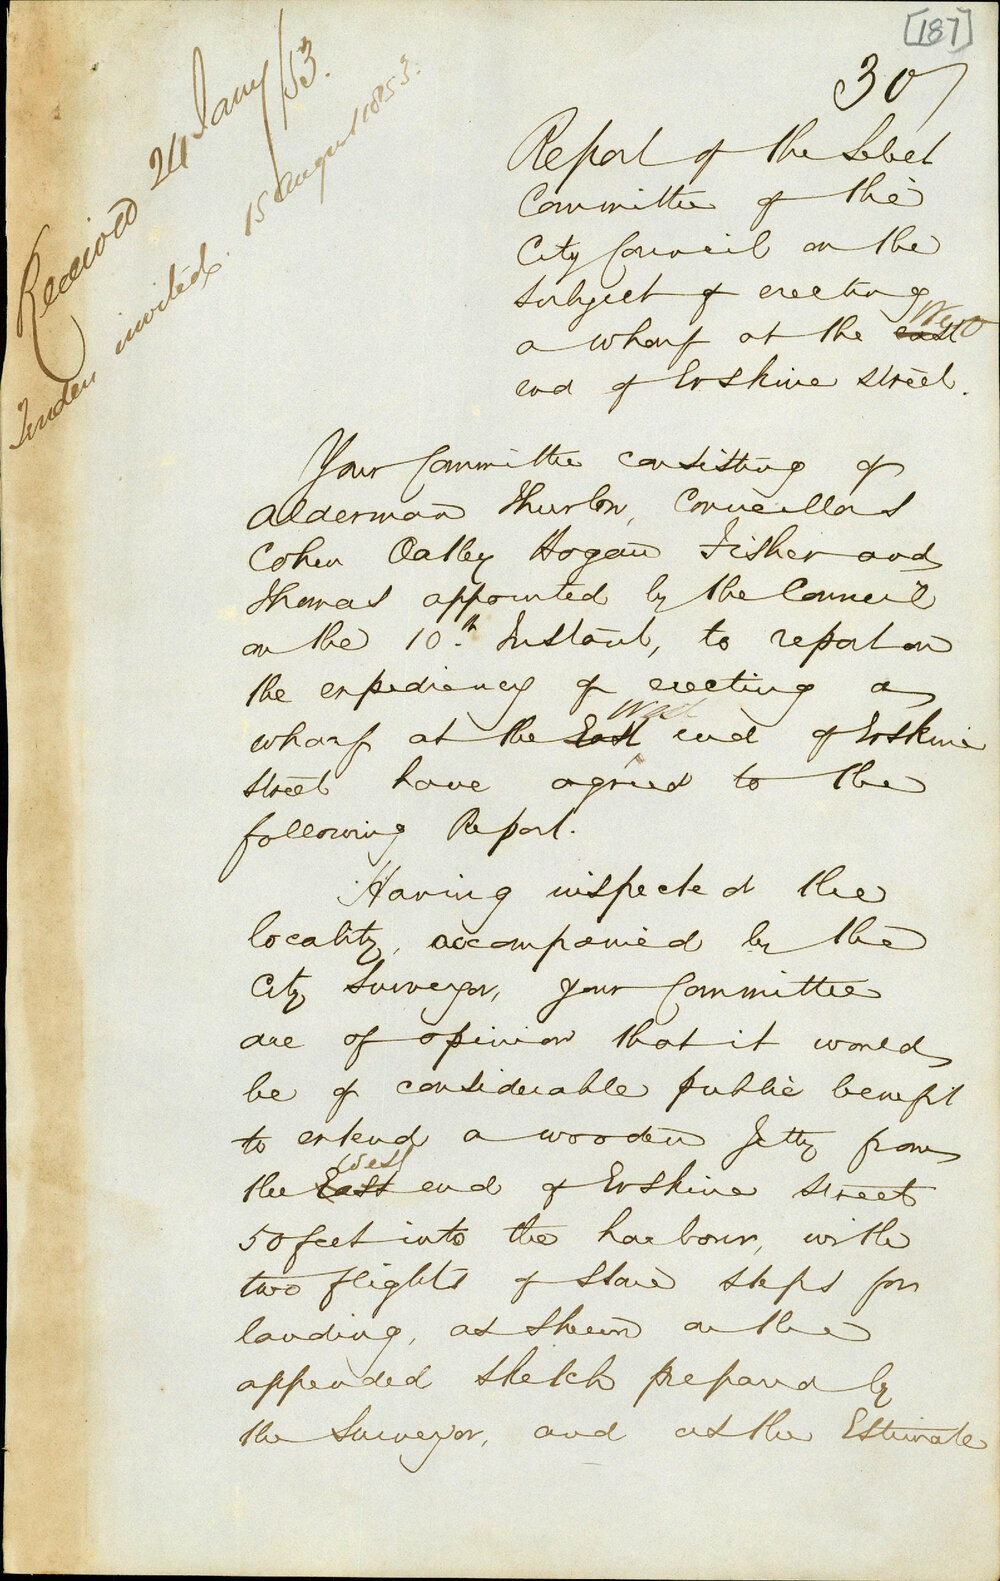 [187]
307
Received 24 Jany/53.
Tenders invited. 15 August 1853.
Report of the Select
Committee of the
City Council on the
subject of erecting
a wharf at the east West
end of Erskine street.
Your Committee consisting of
Alderman Thurlow, Councillors
Cohen Oatley Hogan Fisher and
Thomas appointed by the Council
on the 10.th Instant, to report on
the expediency of erecting a
wharf at the East West end of Erskine
street have agreed to the
following Report.
Having inspected the
locality, accompanied by the
City Surveyor, your Committee
are of opinion that it would
be of considerable public benefit
to extend a wooden Jetty from
the East West end of Erskine Street
50 feet into the harbour, with
two flights of stone steps for
landing, as shewn on the
appended sketch prepared by
the Surveyor, and as the Estimate